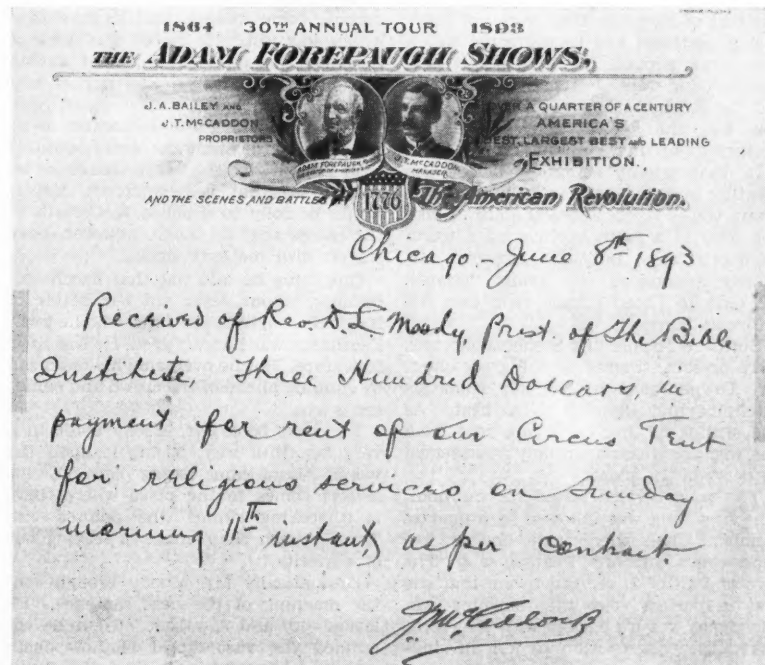 1864 30TH ANNUAL TOUR 1893
THE ADAM FOREPAUGH SHOWS.
J. A. BAILEY AND
J. T. McCADDON
PROPRIETORS
OVER A QUARTER OF A CENTURY
AMERICA'S
LARGEST BEST AND LEADING
EXHIBITION.
ADAM FOREPAUGH
J. T. McCADDON
MANAGER
AND THE SCENES AND BATTLES
1776
The American Revolution.
Chicago - June 8th 1893
Received of Rev. D. L. Moody, Prest. of The Bible
Institute, Three Hundred Dollars, in
payment for rent of our Circus Tent
for religious services, on Sunday
morning 11th instant, as per contract.